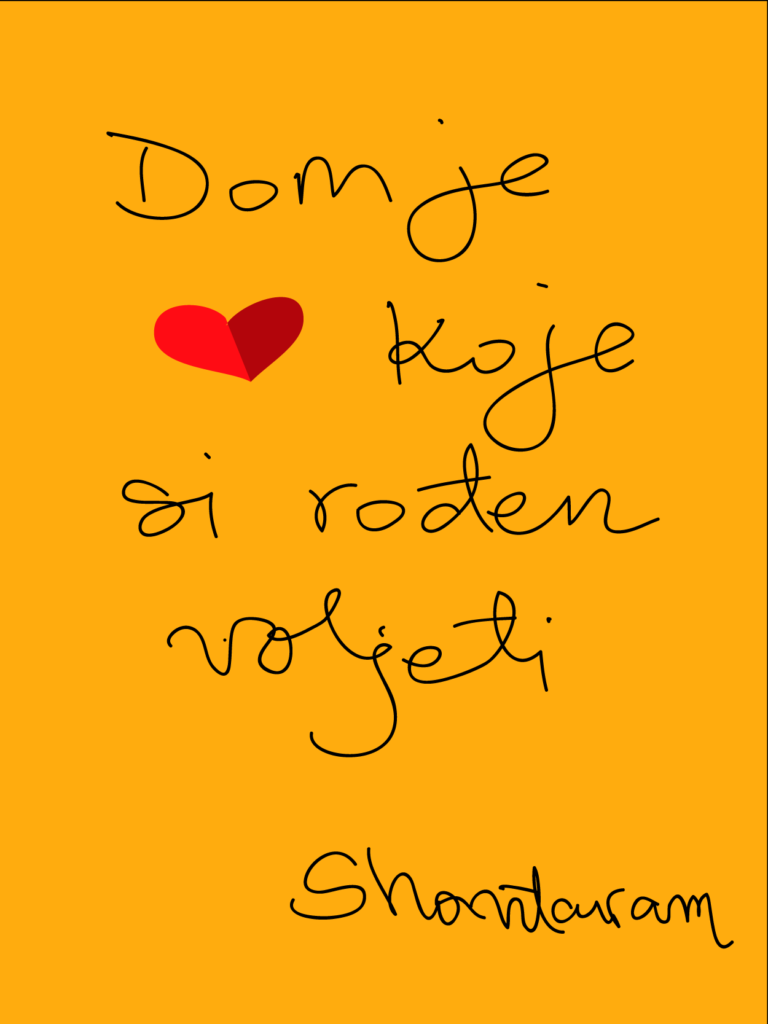 Dom je
koje
si rođen
voljeti
Shantaram